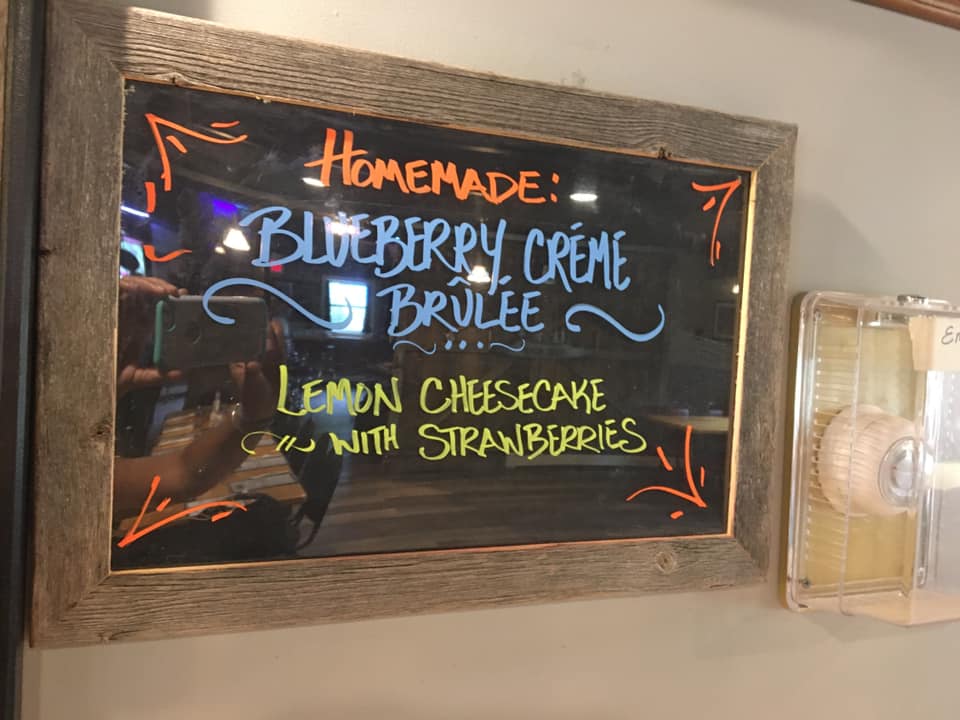 HOMEMADE:
BLUEBERRY CRÉME
BRÛLÉE
LEMON CHEESECAKE
WITH STRAWBERRIES